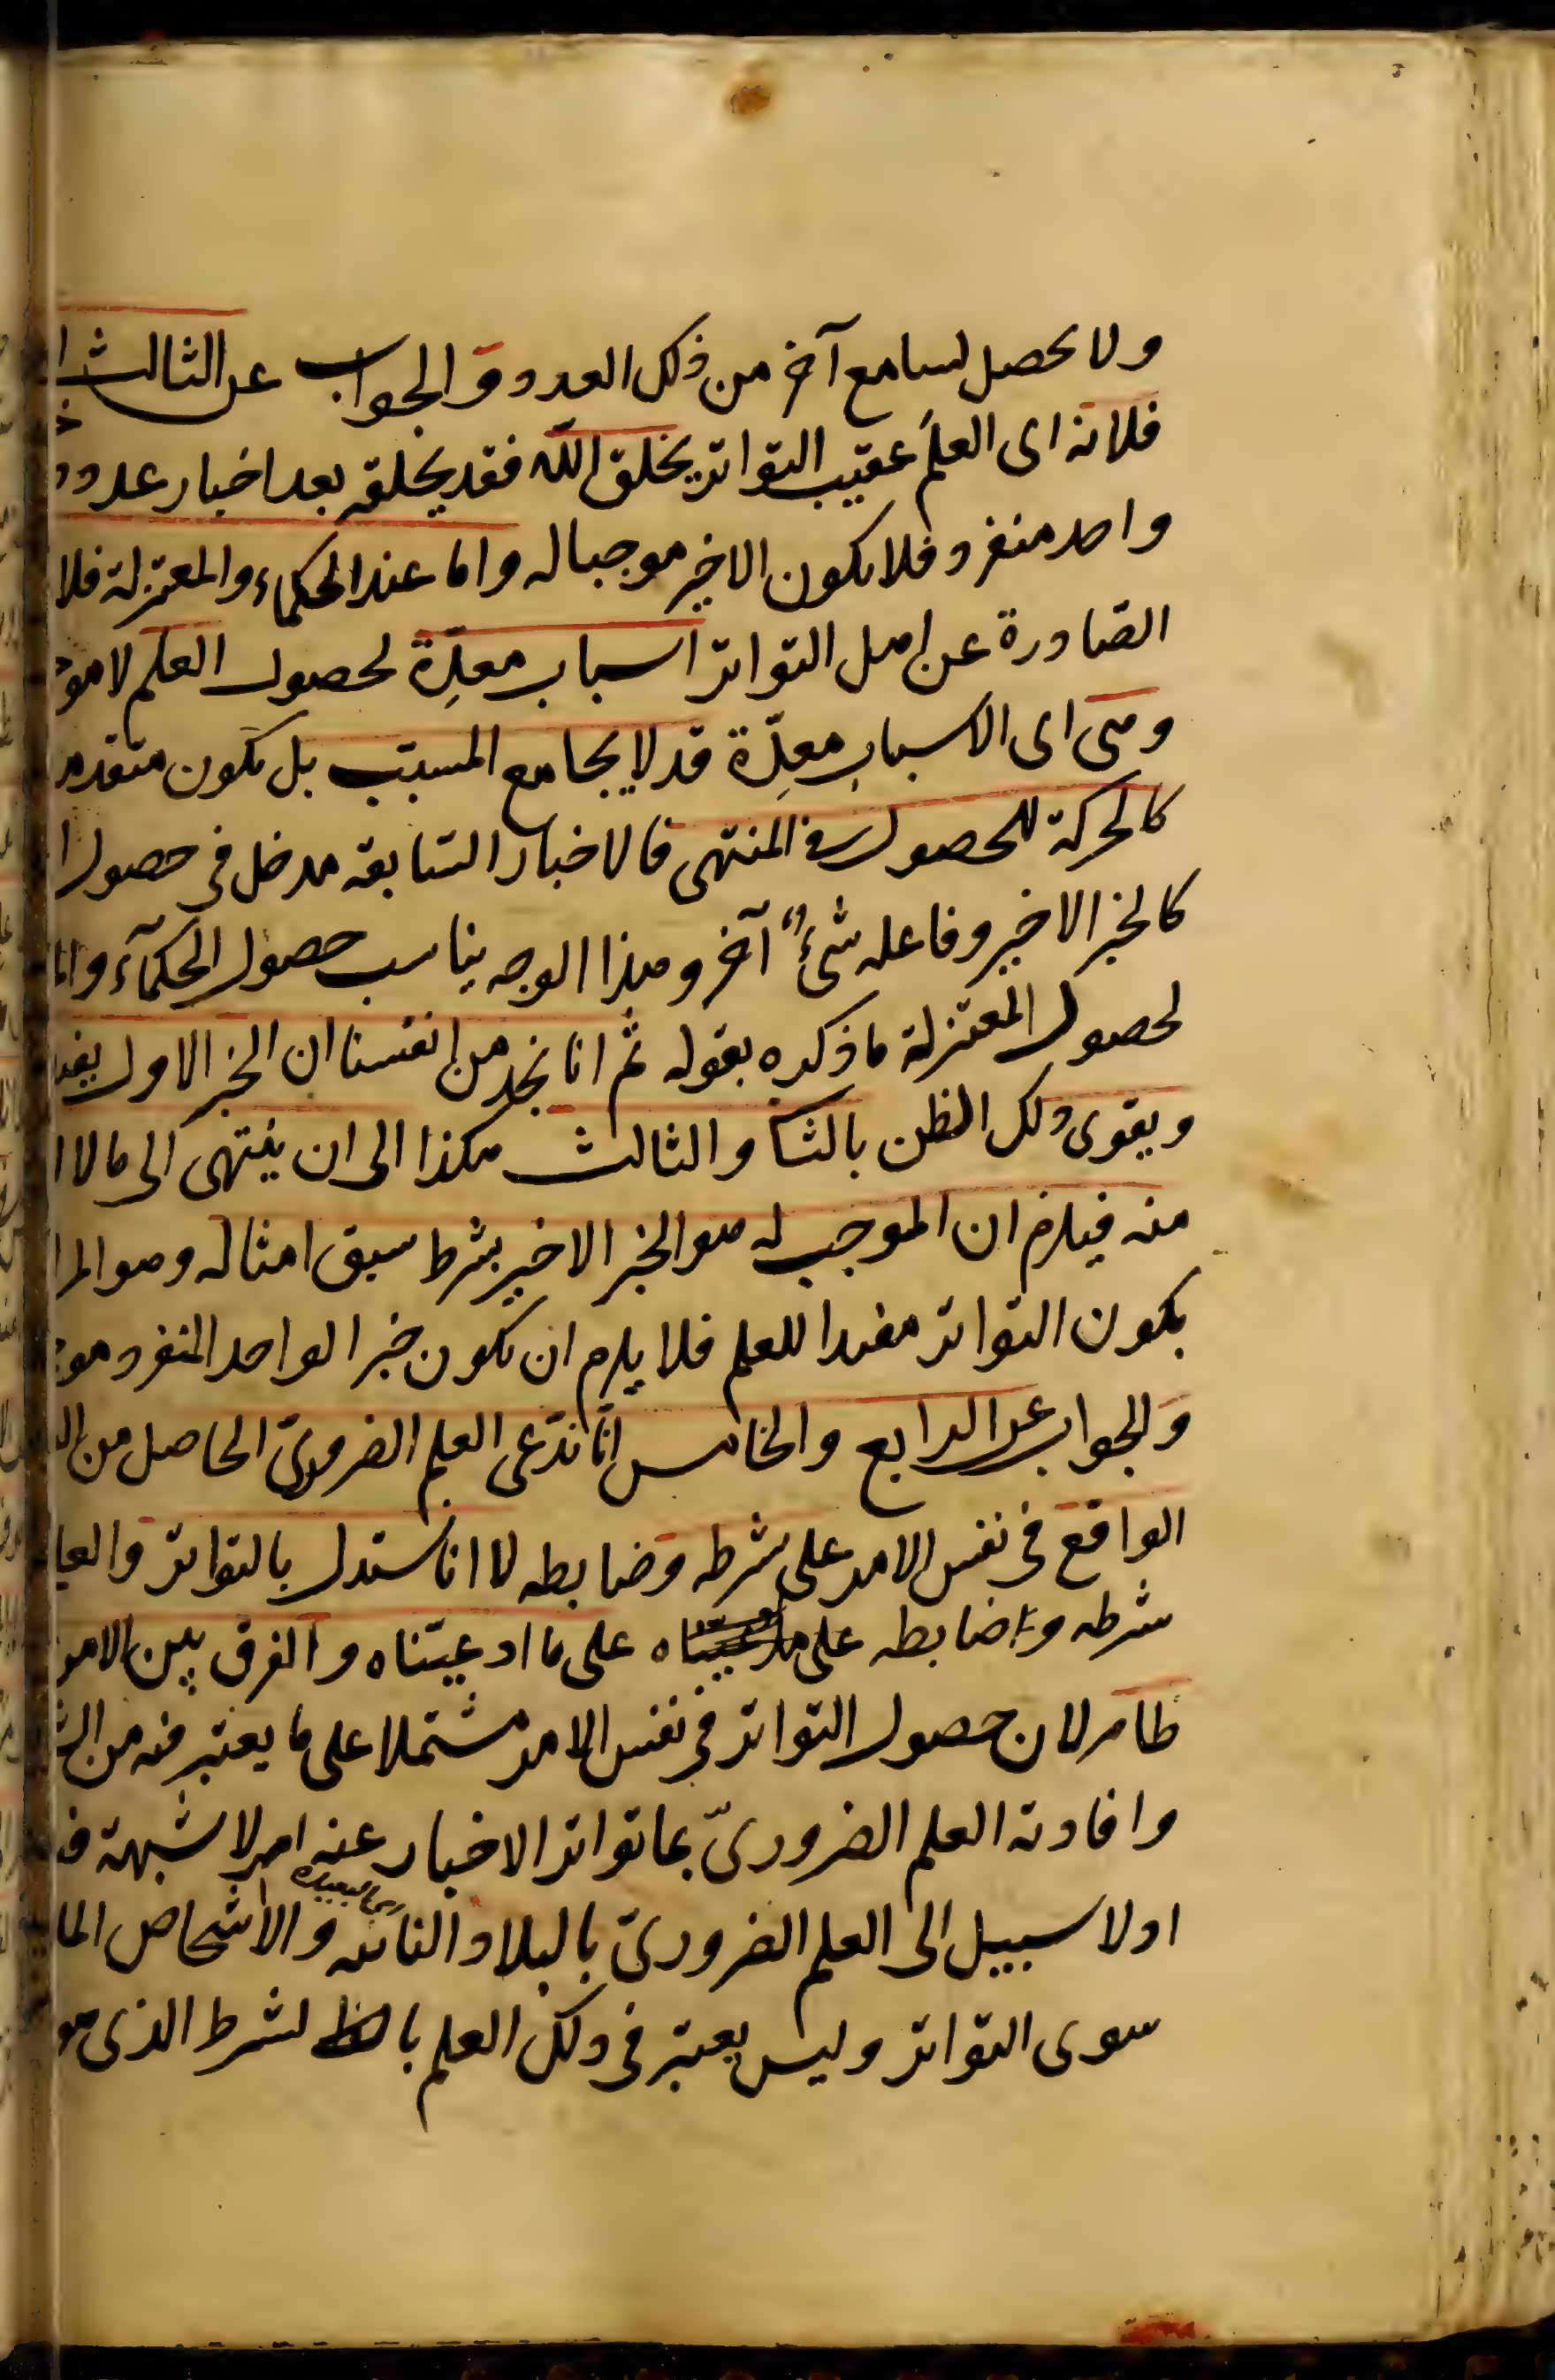 ولا يحصل لسامع آخر من ذلك العدد والجواب عن الثالث
فلانه اى العلم عقيب التواتر يخلق الله فقد يخلقه بعد اخبار عدد
واحد منفرد فلا يكون الاخير موجبا له واما عند الحكماء والمعتزلة فلا
الصادرة عن اهل التواتر اسباب معدّة لحصول العلم لا
وهى اى الاسباب معدّة قد لا يجامع المسبّب بل يكون
كالحركة للحصول فى المنتهى فالاخبار السابقة مدخل فى حصول
كالخبر الاخير وفاعله شئ آخر وهذا الوجه يناسب حصول الحكمآء
لحصول المعتزلة ما ذكره بقوله ثم انا نجد من انفسنا ان الخبر الاول
ويقوى ذلك الظن بالثا والثالث هكذا الى ان ينتهى الى ما لا
منه فيلزم ان الموجب له هو الخبر الاخير بشرط سبق امثاله وهو
بكون التواتر مفيدا للعلم فلا يلزم ان يكون خبر الواحد المنفرد
والجواب عن الرابع والخامس انّا ندّعى العلم الضرورىّ الحاصل من
الواقع فى نفس الامر على شرطه وضابطه لا انا نستدل بالتواتر
شرطه وضابطه على على ما ادعيناه والفرق بين
ظاهر لان حصول التواتر فى نفس الامر مشتملا على ما يعتبر فيه من
وافادته العلم الضرورىّ بما تواتر الاخبار عنه امر لا شبهة
اولا سبيل الى العلم الضرورىّ بالبلاد النائية والاشخاص
سوى التواتر وليس يعتبر فى ذلك العلم لشرط الذى